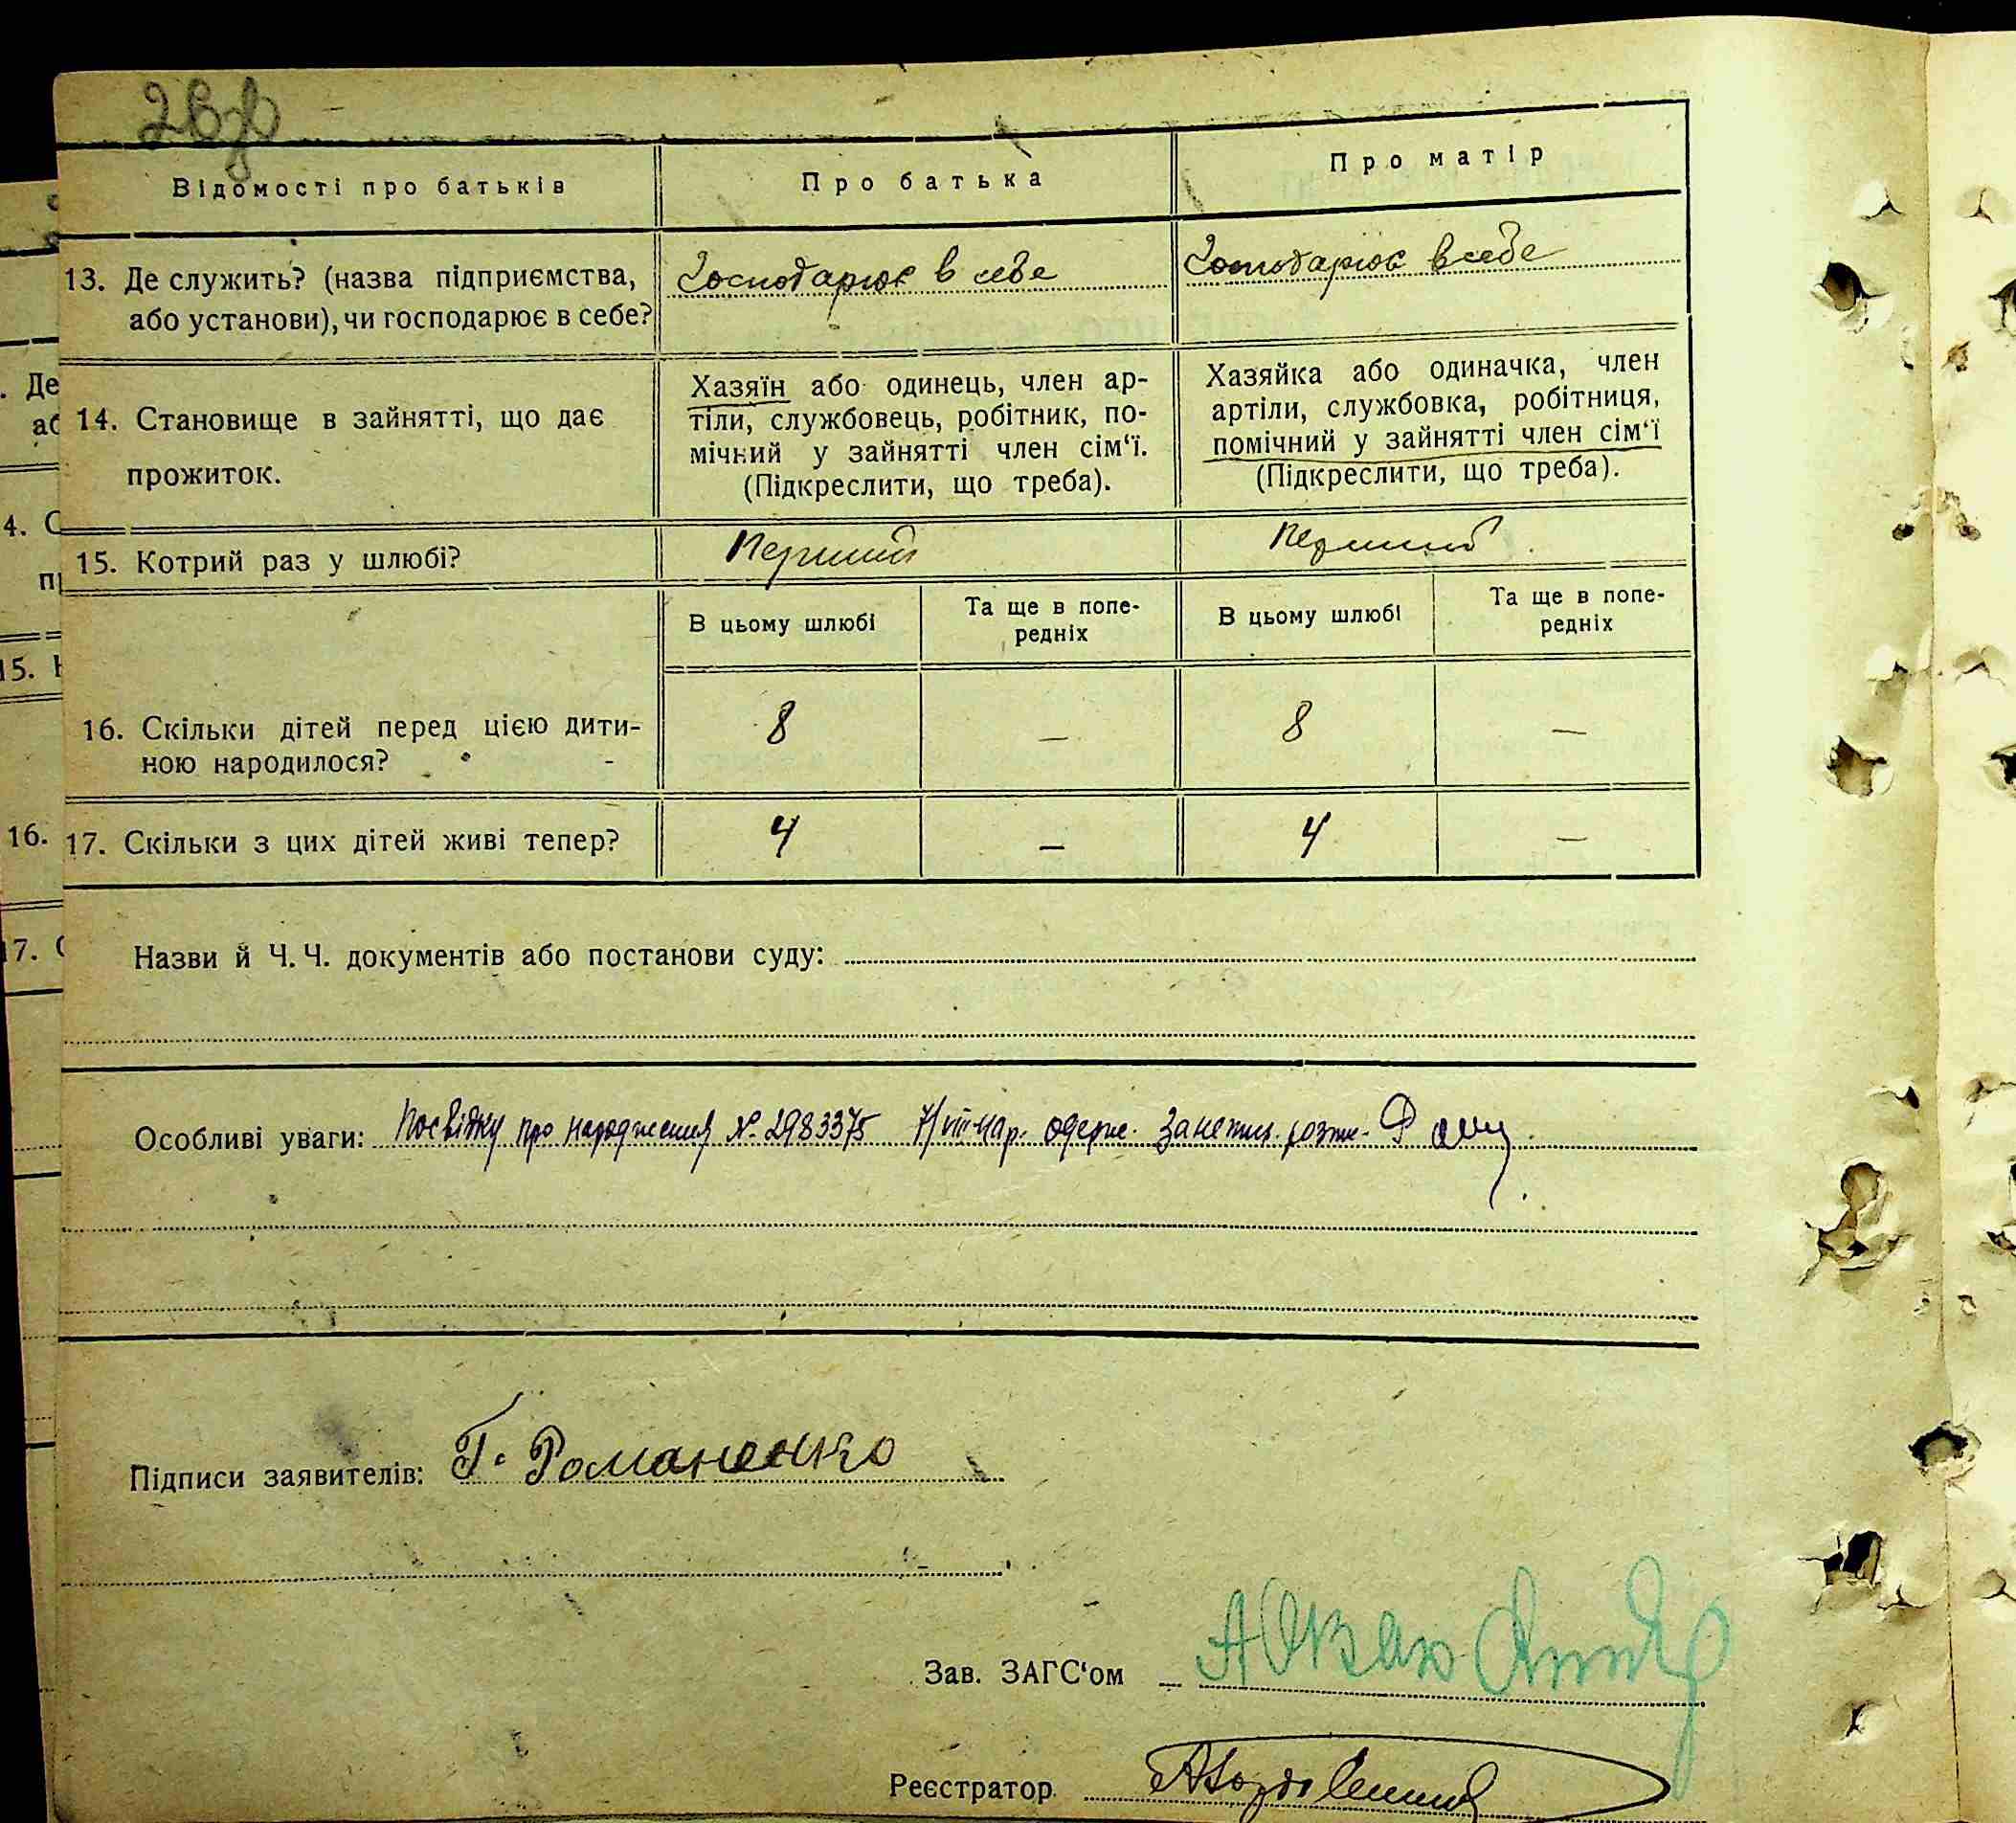 2зв
Відомості про батьків
Про батька
Про матір
13. Де служить? (назва підприємства,
або установи), чи господарює в себе?
Господарює в себе
Господарює в себе
14. Становище в зайнятті, що дає
прожиток.
Хазяїн або одинець, член ар-
тіли, службовець, робітник, по-
мічний у зайнятті член сім‘ї.
(Підкреслити, що треба).
Хазяйка або одиначка, член
артіли, службовка, робітниця,
помічний у зайнятті член сім‘ї
(Підкреслити, що треба).
15. Котрий раз у шлюбі?
Перший
Перший
В цьому шлюбі
Та ще в попе-
редніх
В цьому шлюбі
Та ще в попе-
редніх
16. Скільки дітей перед цією дити-
ною народилося?
8 — 8 —
17. Скільки з цих дітей живі тепер?
4 — 4 —
Назви й Ч. Ч. документів або постанови суду:
Особливі уваги: Посвідку про народження № 2983375
Підписи заявителів: Г. Романенко
Зав. ЗАГС‘ом
Реєстратор
. Де
аб
4. С
пр
15.
16.
17. С